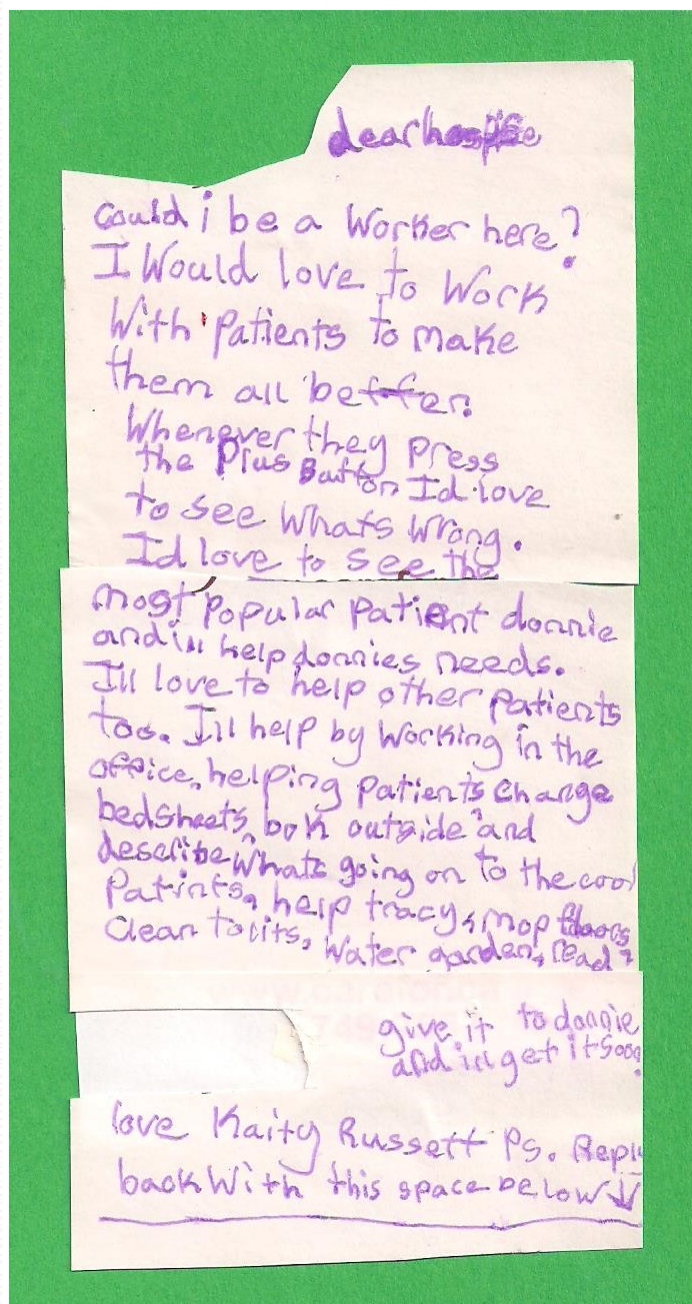 dear hospice
could i be a worker here?
I Would love to Work
With patients to make
them all better.
Whenever they press
the Plus Button Id love
to see whats wrong.
Id love to see the
most popular patient donnie
and ill help donnies needs.
Ill love to help other patients
too. Ill help by working in the
office, helping patients change
bedsheets, look outside and
describe whats going on to the cool
Patints, help tracy, mop floors
Clean toilits, water garden, read
give it to donnie
and ill get it soon.
love Kaity Russett Ps. Reply
back With this space below ↓